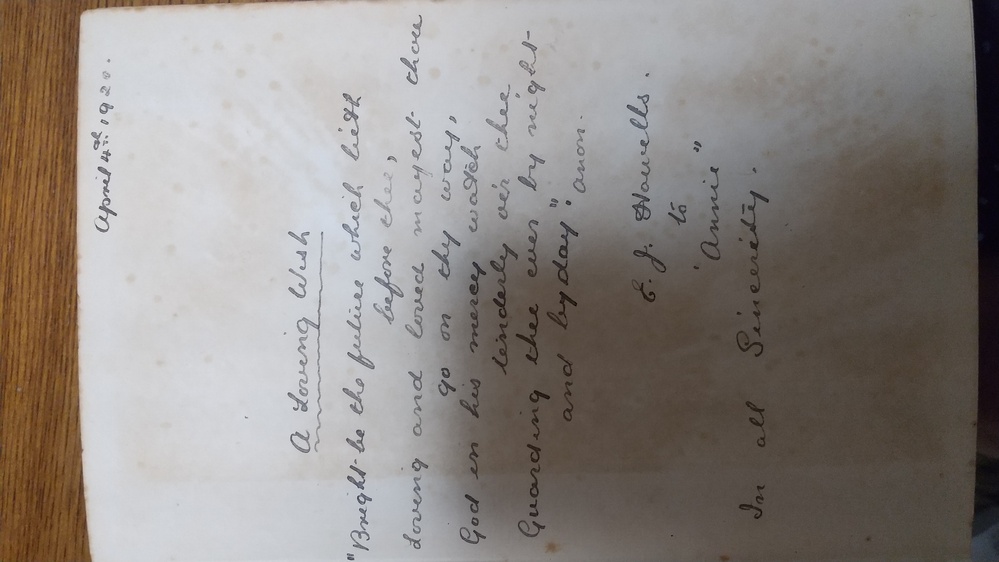 April 4th 1920.
A Loving Wish
"Bright be the future which lieth
before thee,
Loving and loved mayest thou
go on thy way,
God in his mercy watch
tenderly o'er thee
Guarding thee ever by night-
and by day". anon.
E. J. Howells.
to
"Annie"
In all Sincerity.